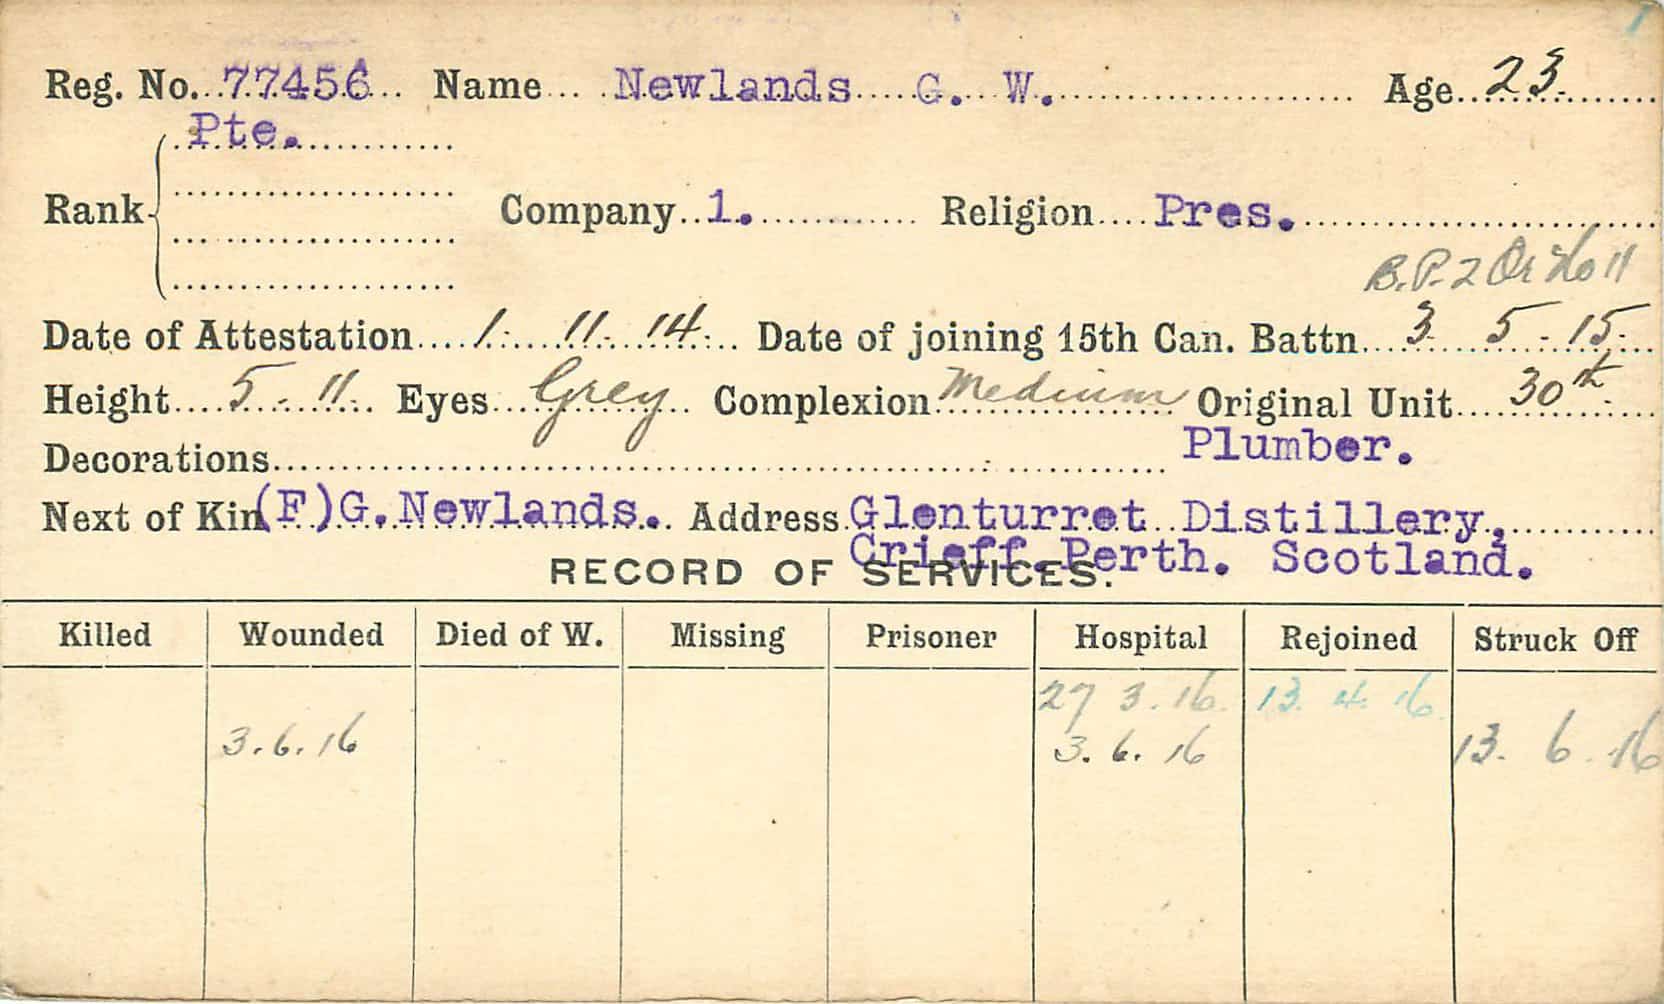 Reg. No. 77456 Name Newlands G. W. Age 23
Pte.
Rank Company 1. Religion Pres.
B.P. 2
Date of Attestation 1. 11. 14. Date of joining 15th Can. Battn 3 5 - 15.
Height 5 - 11. Eyes Grey Complexion Medium Original Unit 30th
Decorations Plumber.
Next of Kin (F) G. Newlands. Address Glenturret Distillery,
Crieff. Perth. Scotland.
RECORD OF SERVICES.
Killed Wounded Died of W. Missing Prisoner Hospital Rejoined Struck Off
27 3. 16. 13. 4. 16.
3. 6. 16 3. 6. 16 13. 6. 16